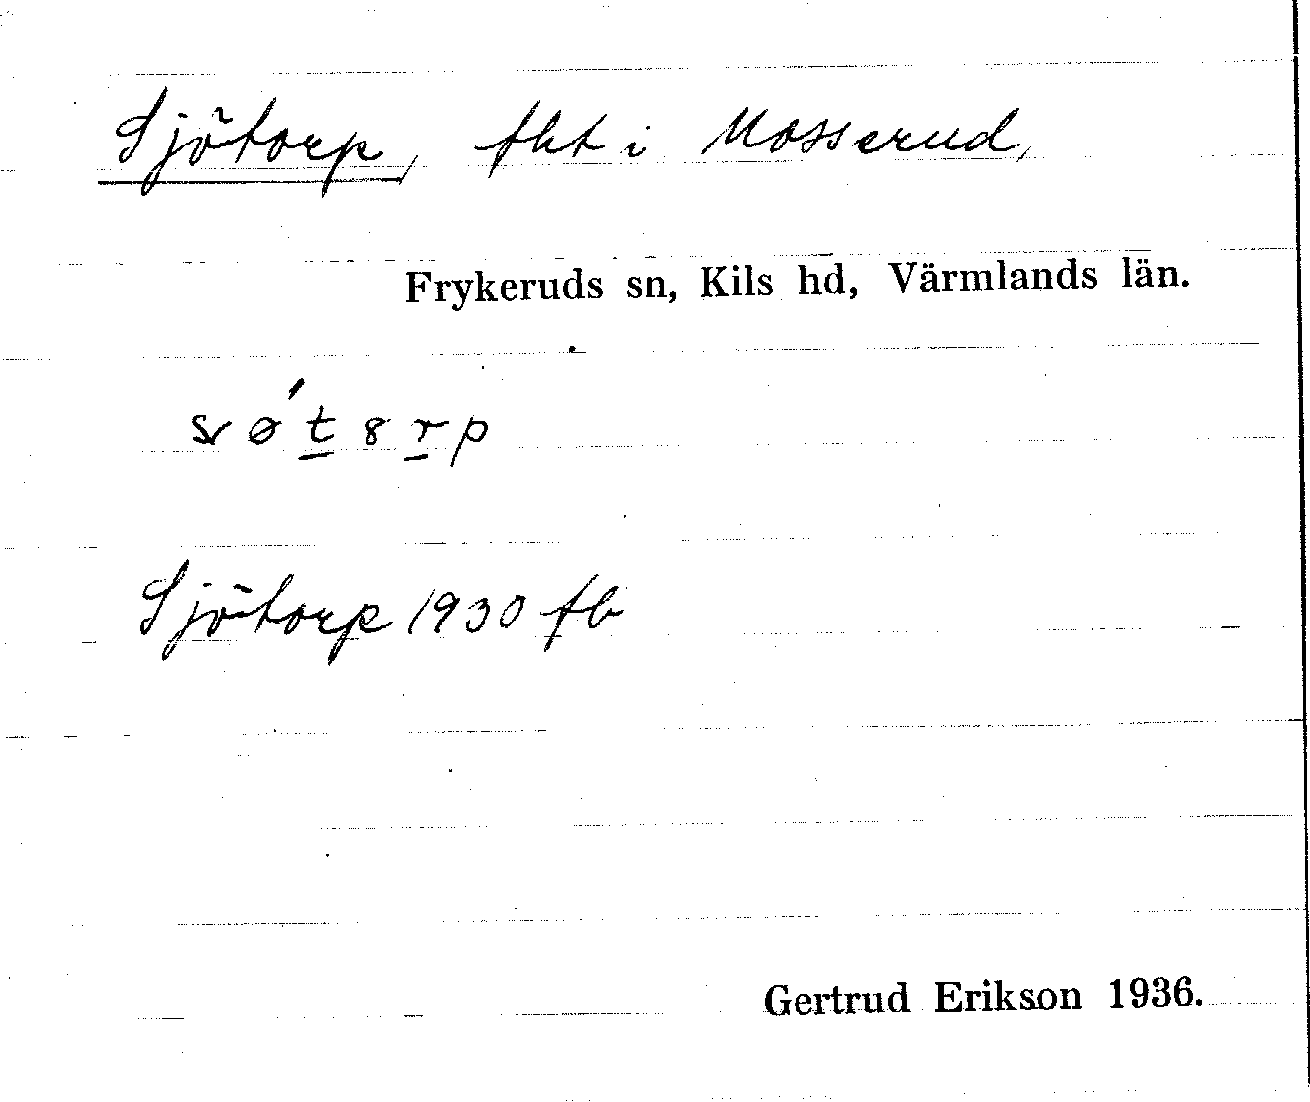 Sjötorp, fht i Mosserud,
Frykeruds sn, Kils hd, Värmlands län.
Sjötorp 1930 fb
Gertrud Erikson 1936.